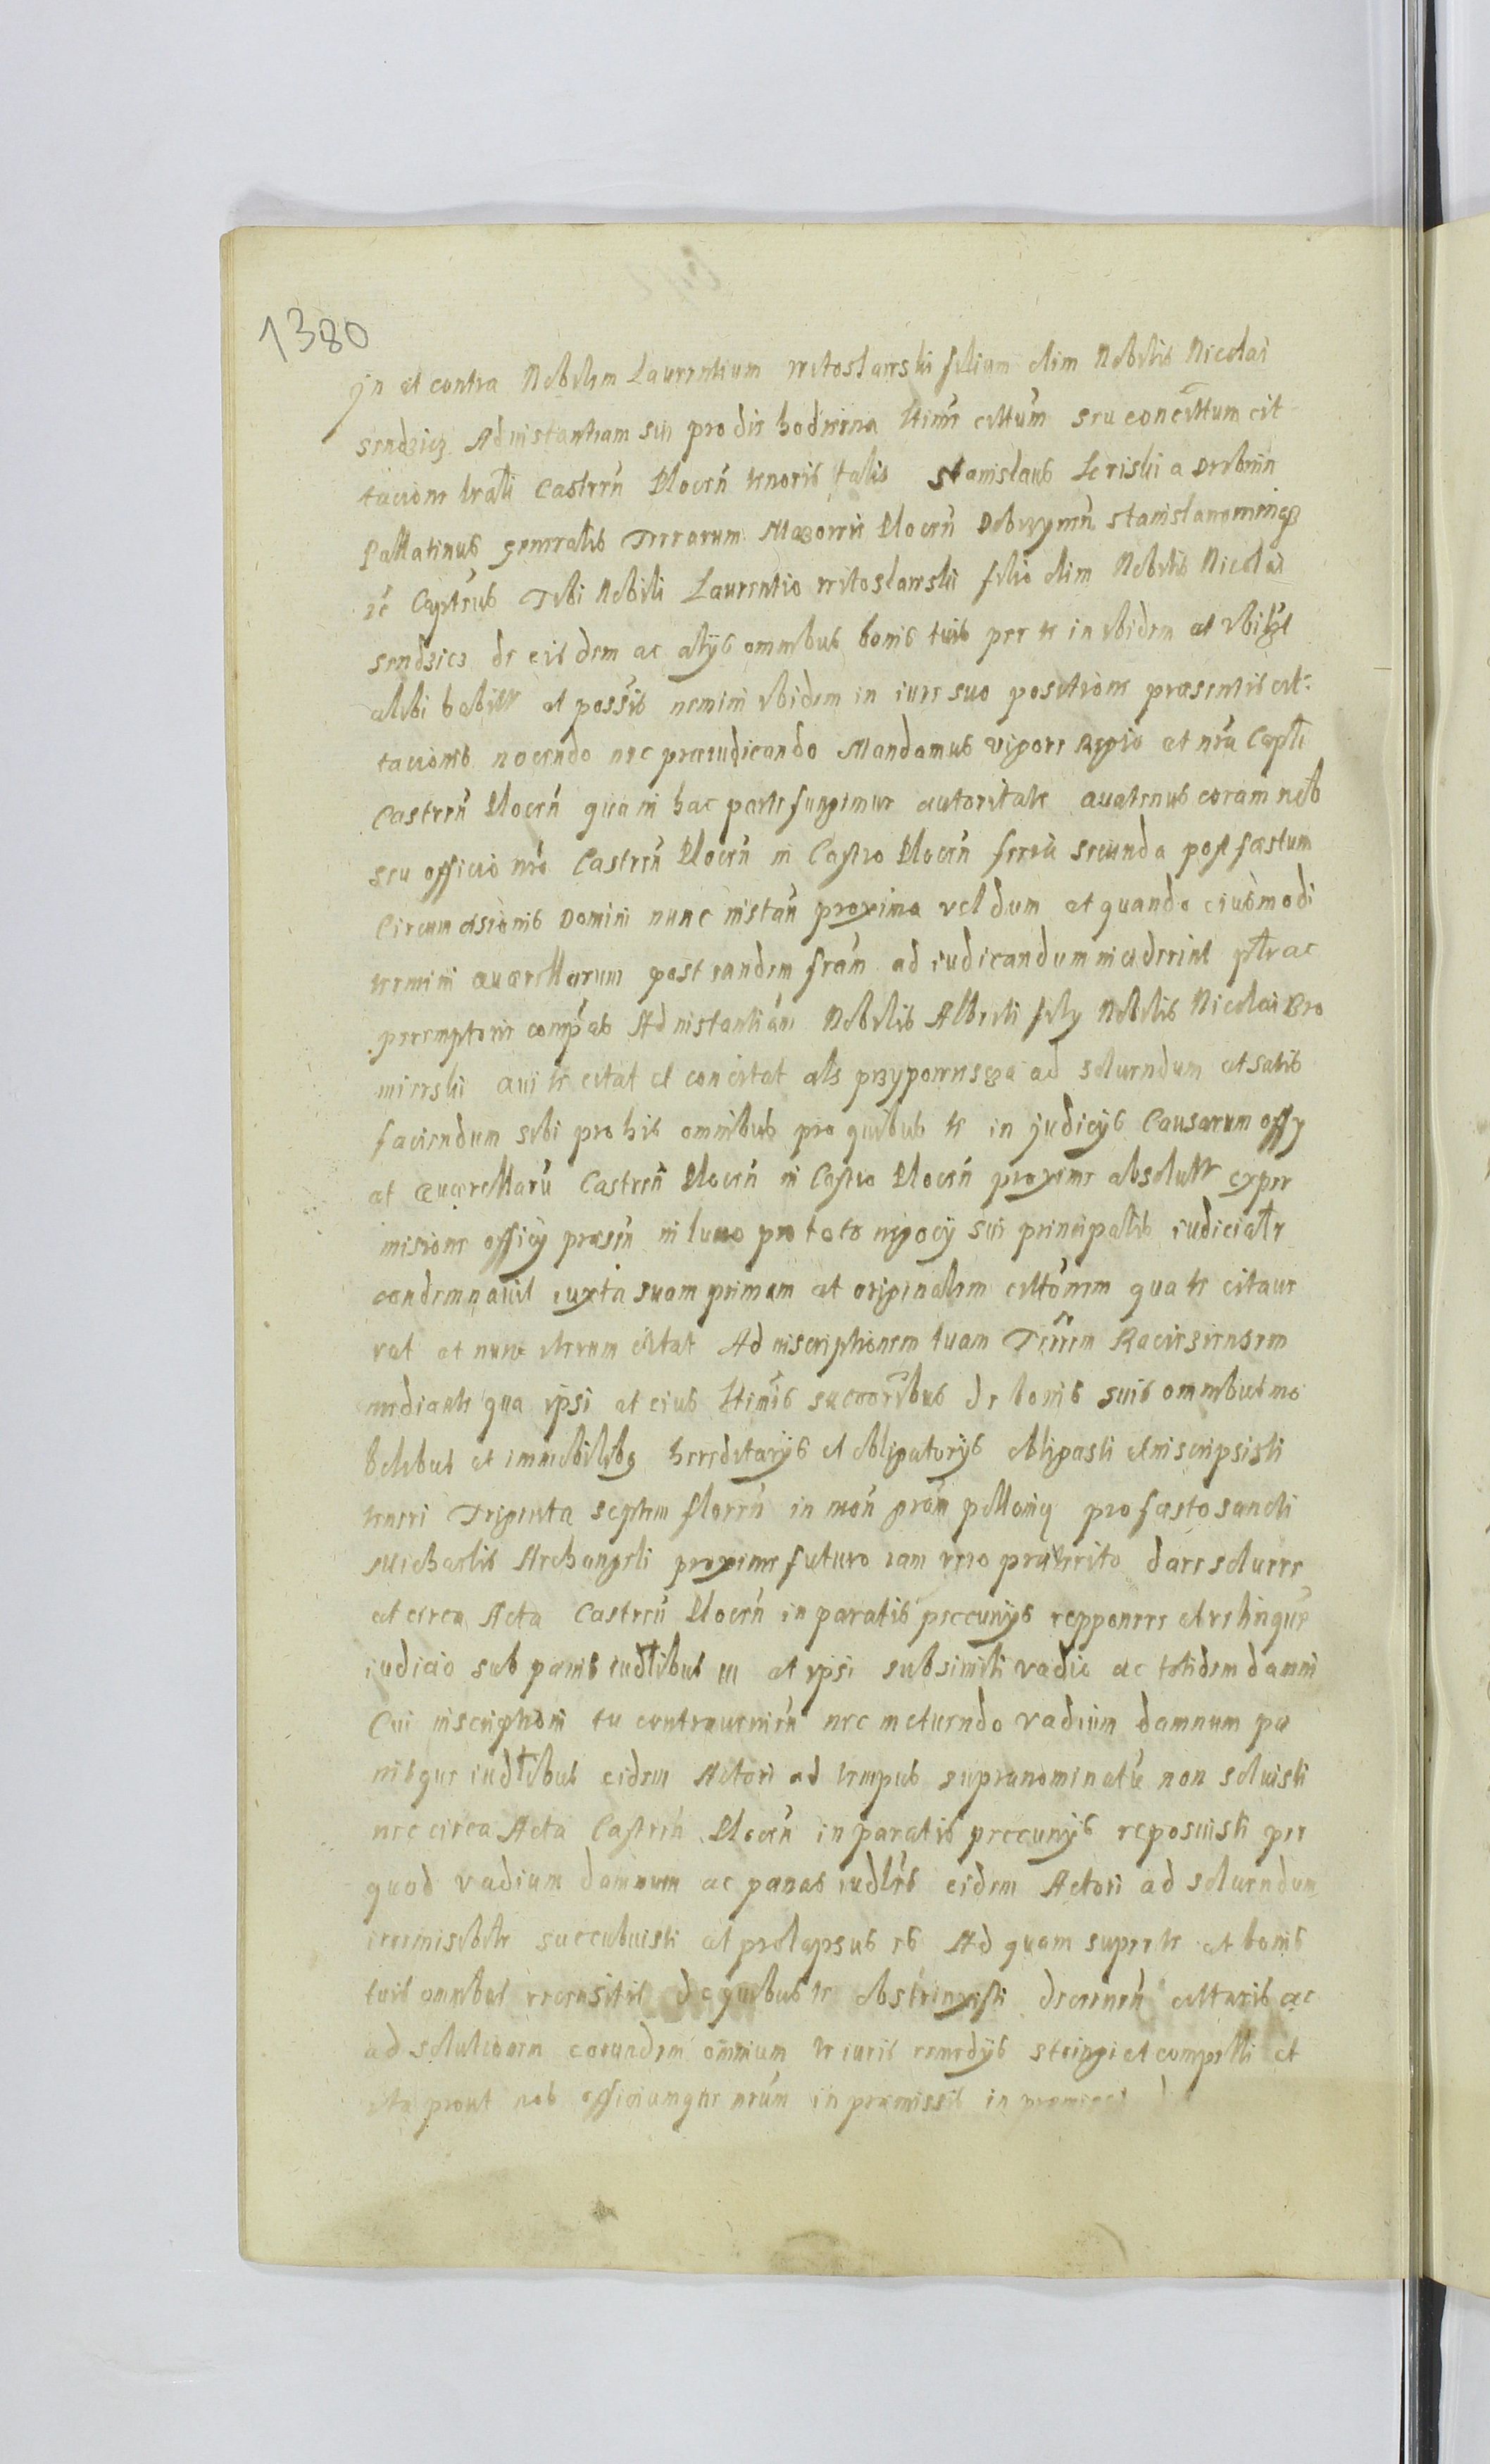 1380
Jn et contra Nobilem Laurentium Witoslawski filium olim Nobilis Nicolai
Sendzicz Ad instantiam sui pro die hodierna ltime cittum seu concittum cit
tacione lrali Castren̄ Plocen̄ tenoris talis Stanislaus Leriski a
Pallatinus generalis Terrarum Mazowie Plocen̄ Dobrzynen̄
zē Capteus Tibi Nobili Laurentio Witoslawski filio olim Nobilis Nicolai
Sendzicz de eisdem ac alijs omnibus bonis tuis per te in ibidem et vbilzt
alibi habitis et possis nemini ibidem in iure suo positione praesentis cit
tacionis nocendo nec praeiudicando Mandamus vigore Regio et nrā Captli
Castren̄ Plocen̄ qua in hac parte fungimur autoritate Quatenus coram nob
seu officio nrō Castren̄ Plocen̄ in Castro Plocen̄ feria secunda post faestum
Circumcisionis Domini nunc instan̄ proxima vel dum et quando eiusmodi
termini Quaerellarum post eandem fram̄ ad iudicandum inciderint pltr ac
peremptorie compās Ad instantiam Nobilis Alberti filij Nobilis Nicolai Bro
mierski Qui te citat et concitat als przypowiesza ad soluendum et satis
faciendum sibi pro his omnibus pro quibus te in judicijs Causarum offy
et Quaerellarū Castren̄ Plocen̄ in Castro Plocen̄ proxime absolutis ex per
misione officij praesen̄ in lucro pro toto negocij sui principalis iudicialr
condemnauit iuxta suam primam et originalem cittōnem qua te citaue
rat et nunc iterum citat Ad inscriptionem tuam Terrem Raciezsiensem
mediante qua ipsi et eius ltimis succoribus de bonis suis omnibus mo
bilibus et immobilibq hereditarijs et obligatorijs obligasti et inscripsisti
teneri Triginta septem floren̄ in mon̄ pro faesto sancti
Michaelis Archangeli proxime futuro iam vero praeterito dare soluere
et circa Acta Castren̄ Plocen̄ in paratis peccunijs repponere et relinque
iudicio sub paenis iudlibus III et ipsi sub simili vadio ac totidem damni
Cui inscriptioni tu contrauenien̄ nec metuendo vadium damnum pae
nisque iudlibus eidem Actori ad tempus supranominatū non soluisti
nec circa Acta Castren̄ Plocen̄ in paratis peccunijs reposuisti per
quod vadium damnum ac paenas iudles eidem Actori ad soluendum
irremisibiltr succubuisti et prolapsus es Ad quam super te et bonis
tuis omnibus recensitis de quibus te obstrinxisti decernen̄ cittaris ac
ad solutionem eorundem omnium te iuris remedijs stringi et compelli et
ita prout nos officiumque nrūm in praemissis in